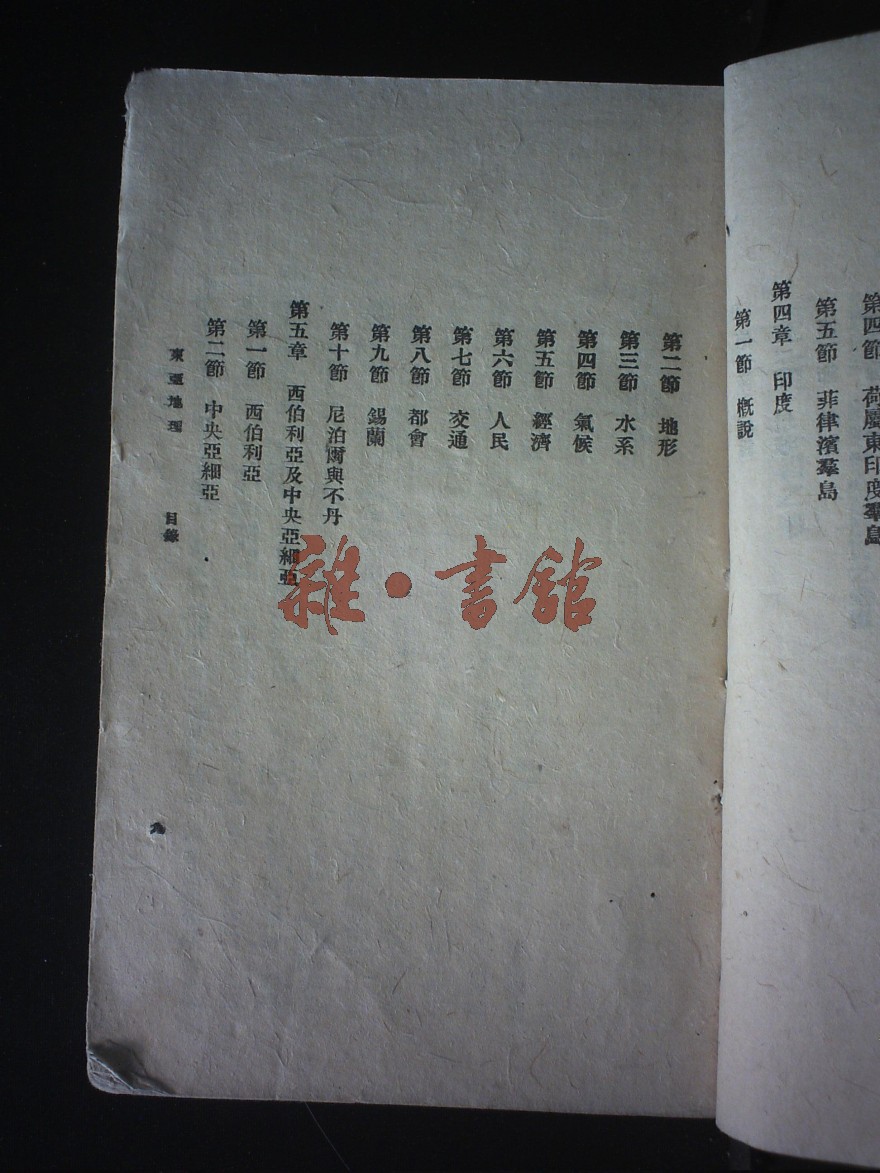 第四節　荷屬東印度羣島
第五節　菲律濱羣島
第四章　印度
第一節　概說
第二節　地形
第三節　水系
第四節　氣候
第五節　經濟
第六節　人民
第七節　交通
第八節　都會
第九節　錫蘭
第十節　尼泊爾與不丹
第五章　西伯利亞及中央亞細亞
第一節　西伯利亞
第二節　中央亞細亞
東亞地理　目錄
雜·書館